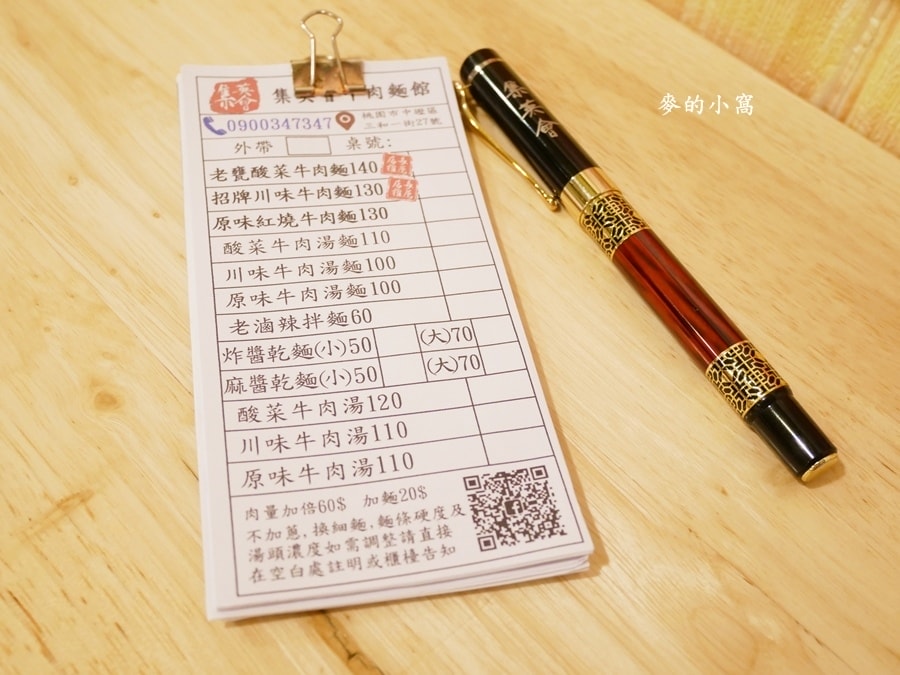 集英會
集英會牛肉麵館
0900347347
桃園市中壢區
三和一街27號
外帶 桌號:
老甕酸菜牛肉麵140
招牌川味牛肉麵130
原味紅燒牛肉麵130
酸菜牛肉湯麵110
川味牛肉湯麵100
原味牛肉湯麵100
老滷辣拌麵60
炸醬乾麵(小)50 (大)70
麻醬乾麵(小)50 (大)70
酸菜牛肉湯120
川味牛肉湯110
原味牛肉湯110
肉量加倍60$ 加麵20$
不加蔥,換細麵,麵條硬度及
湯頭濃度如需調整請直接
在空白處註明或櫃檯告知
集英會
麥的小窩